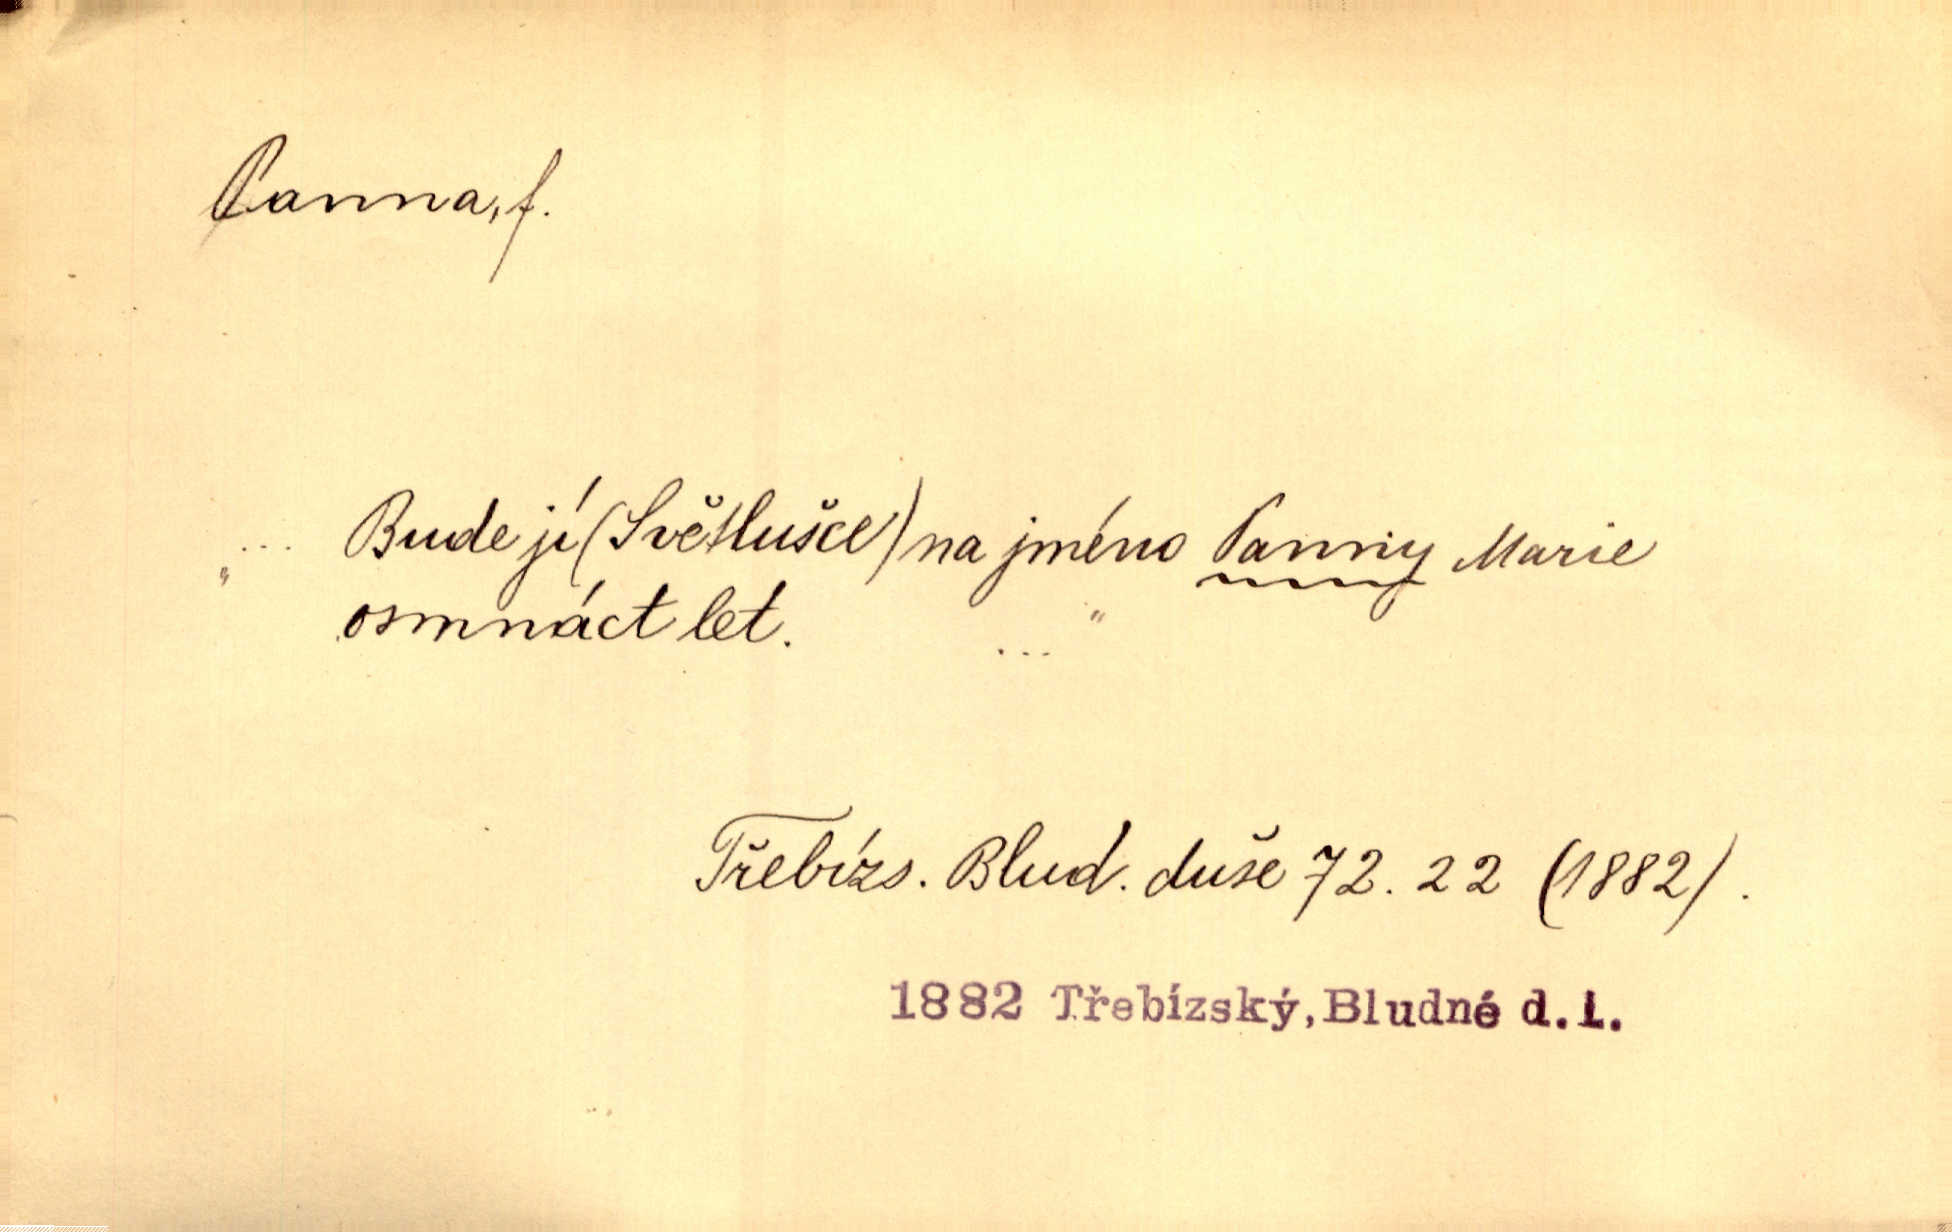 Panna, f.
„... Bude jí (Světlušce) na jméno Panny Marie
osmnáct let. ..."
Třebízs. Blud. duše 72. 22 (1882).
1882 Třebízský, Bludné d.i.